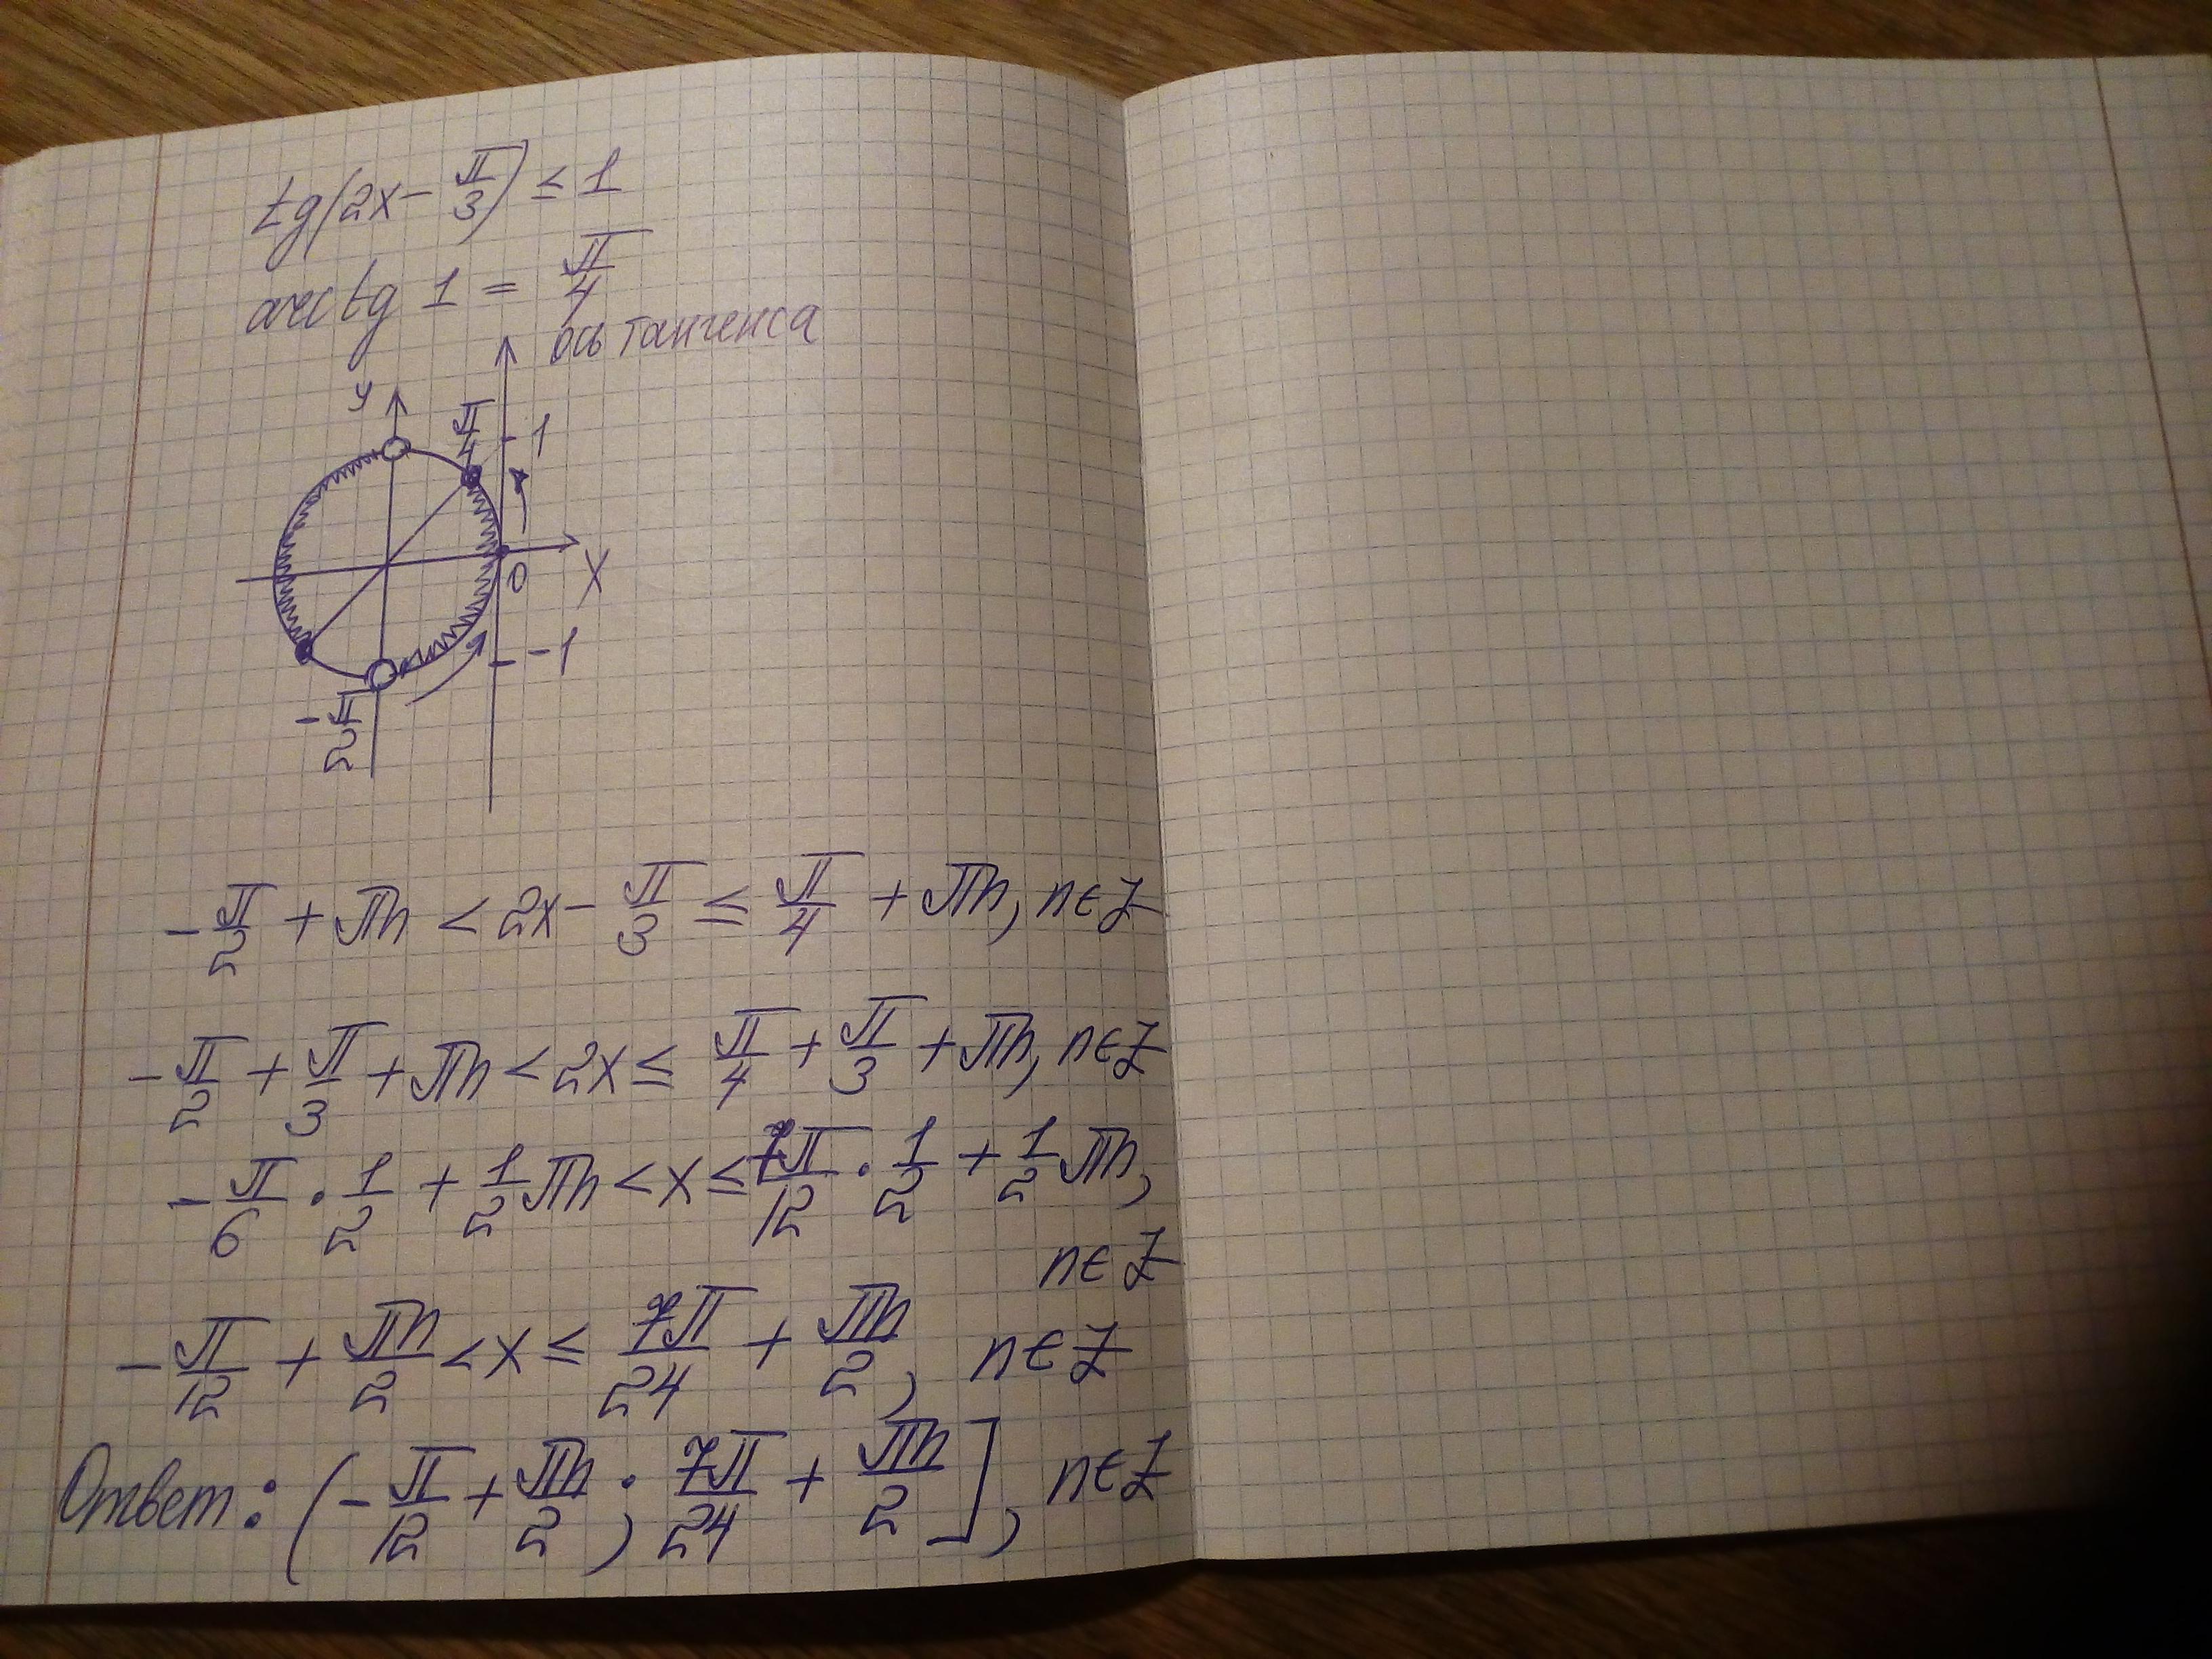 tg(2x - π/3) ≤ 1
arctg 1 = π/4
ось тангенса
y
π/4
1
0
X
-1
-π/2
-π/2 + πn < 2x - π/3 ≤ π/4 + πn, n∈Z
-π/2 + π/3 + πn < 2x ≤ π/4 + π/3 + πn, n∈Z
-π/6 · 1/2 + 1/2 πn < x ≤ 7π/12 · 1/2 + 1/2 πn,
n∈Z
-π/12 + πn/2 < x ≤ 7π/24 + πn/2, n∈Z
Ответ: (-π/12 + πn/2; 7π/24 + πn/2], n∈Z